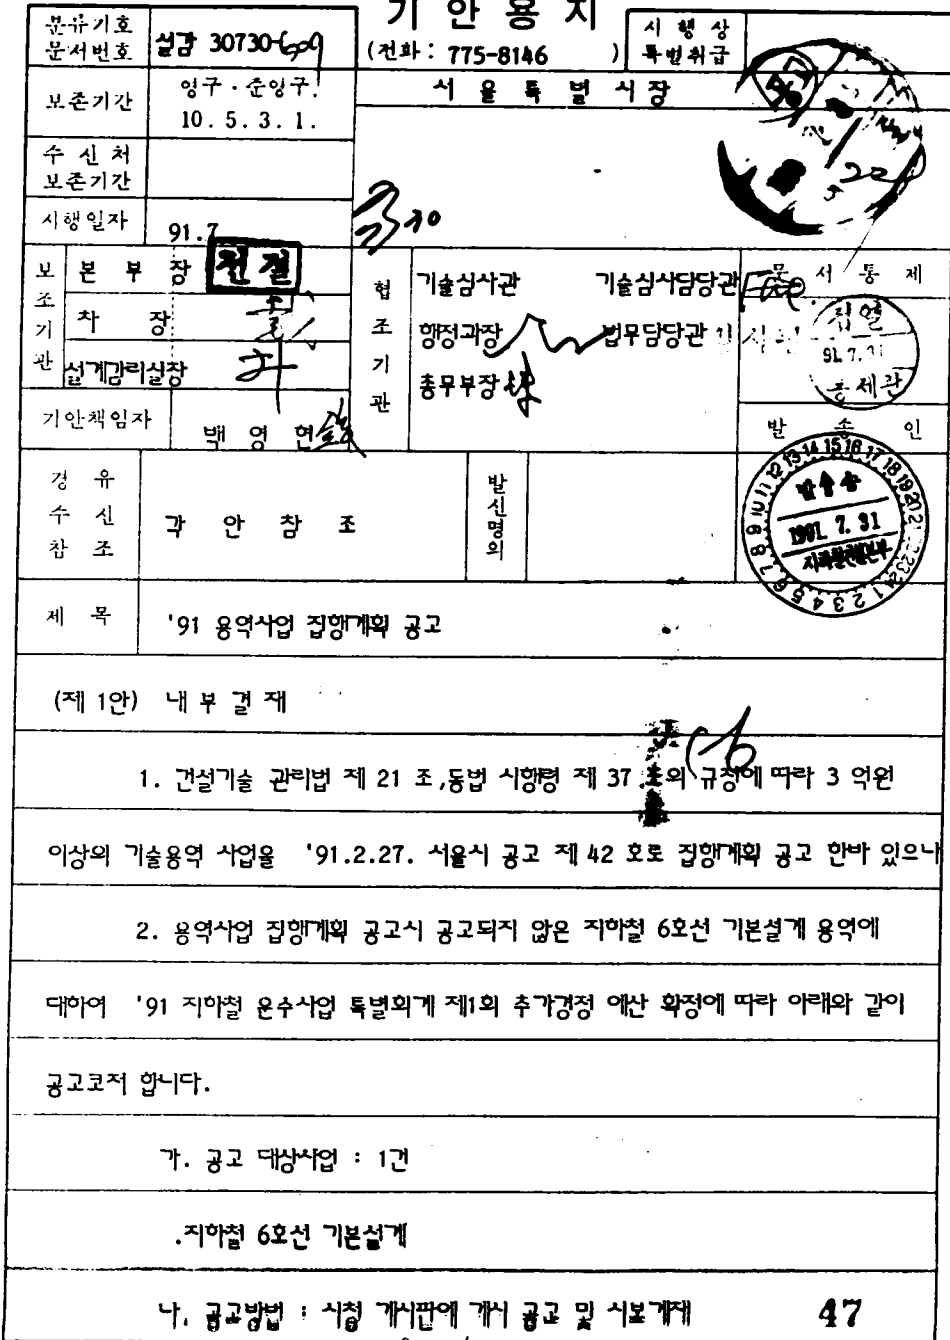 기 안 용 지
분류기호
문서번호
설감 30730-609
(전화 : 775-8146 )
시 행 상
특별취급
보존기간
영구 · 준영구
10. 5. 3. 1.
서 울 특 별 시 장
수 신 처
보존기간
시행일자
91.7
보조기관
본 부 장
전결
차 장
설계감리실장
협조기관
기술심사관 기술심사담당관
행정과장 법무담당관
총무부장
문 서 통 제
검열
91.7.31
통제관
기안책임자
백 영 현
발 송 인
발송
1991. 7. 31
경 유
수 신
참 조
각 안 참 조
발신명의
제 목
'91 용역사업 집행계획 공고
(제 1안) 내 부 결 재
1. 건설기술 관리법 제 21 조,동법 시행령 제 37 조의 규정에 따라 3 억원
이상의 기술용역 사업을 '91.2.27. 서울시 공고 제 42 호로 집행계획 공고 한바 있으나
2. 용역사업 집행계획 공고시 공고되지 않은 지하철 6호선 기본설계 용역에
대하여 '91 지하철 운수사업 특별회계 제1회 추가경정 예산 확정에 따라 아래와 같이
공고코저 합니다.
가. 공고 대상사업 : 1건
.지하철 6호선 기본설계
나. 공고방법 : 시청 게시판에 게시 공고 및 시보게재
47